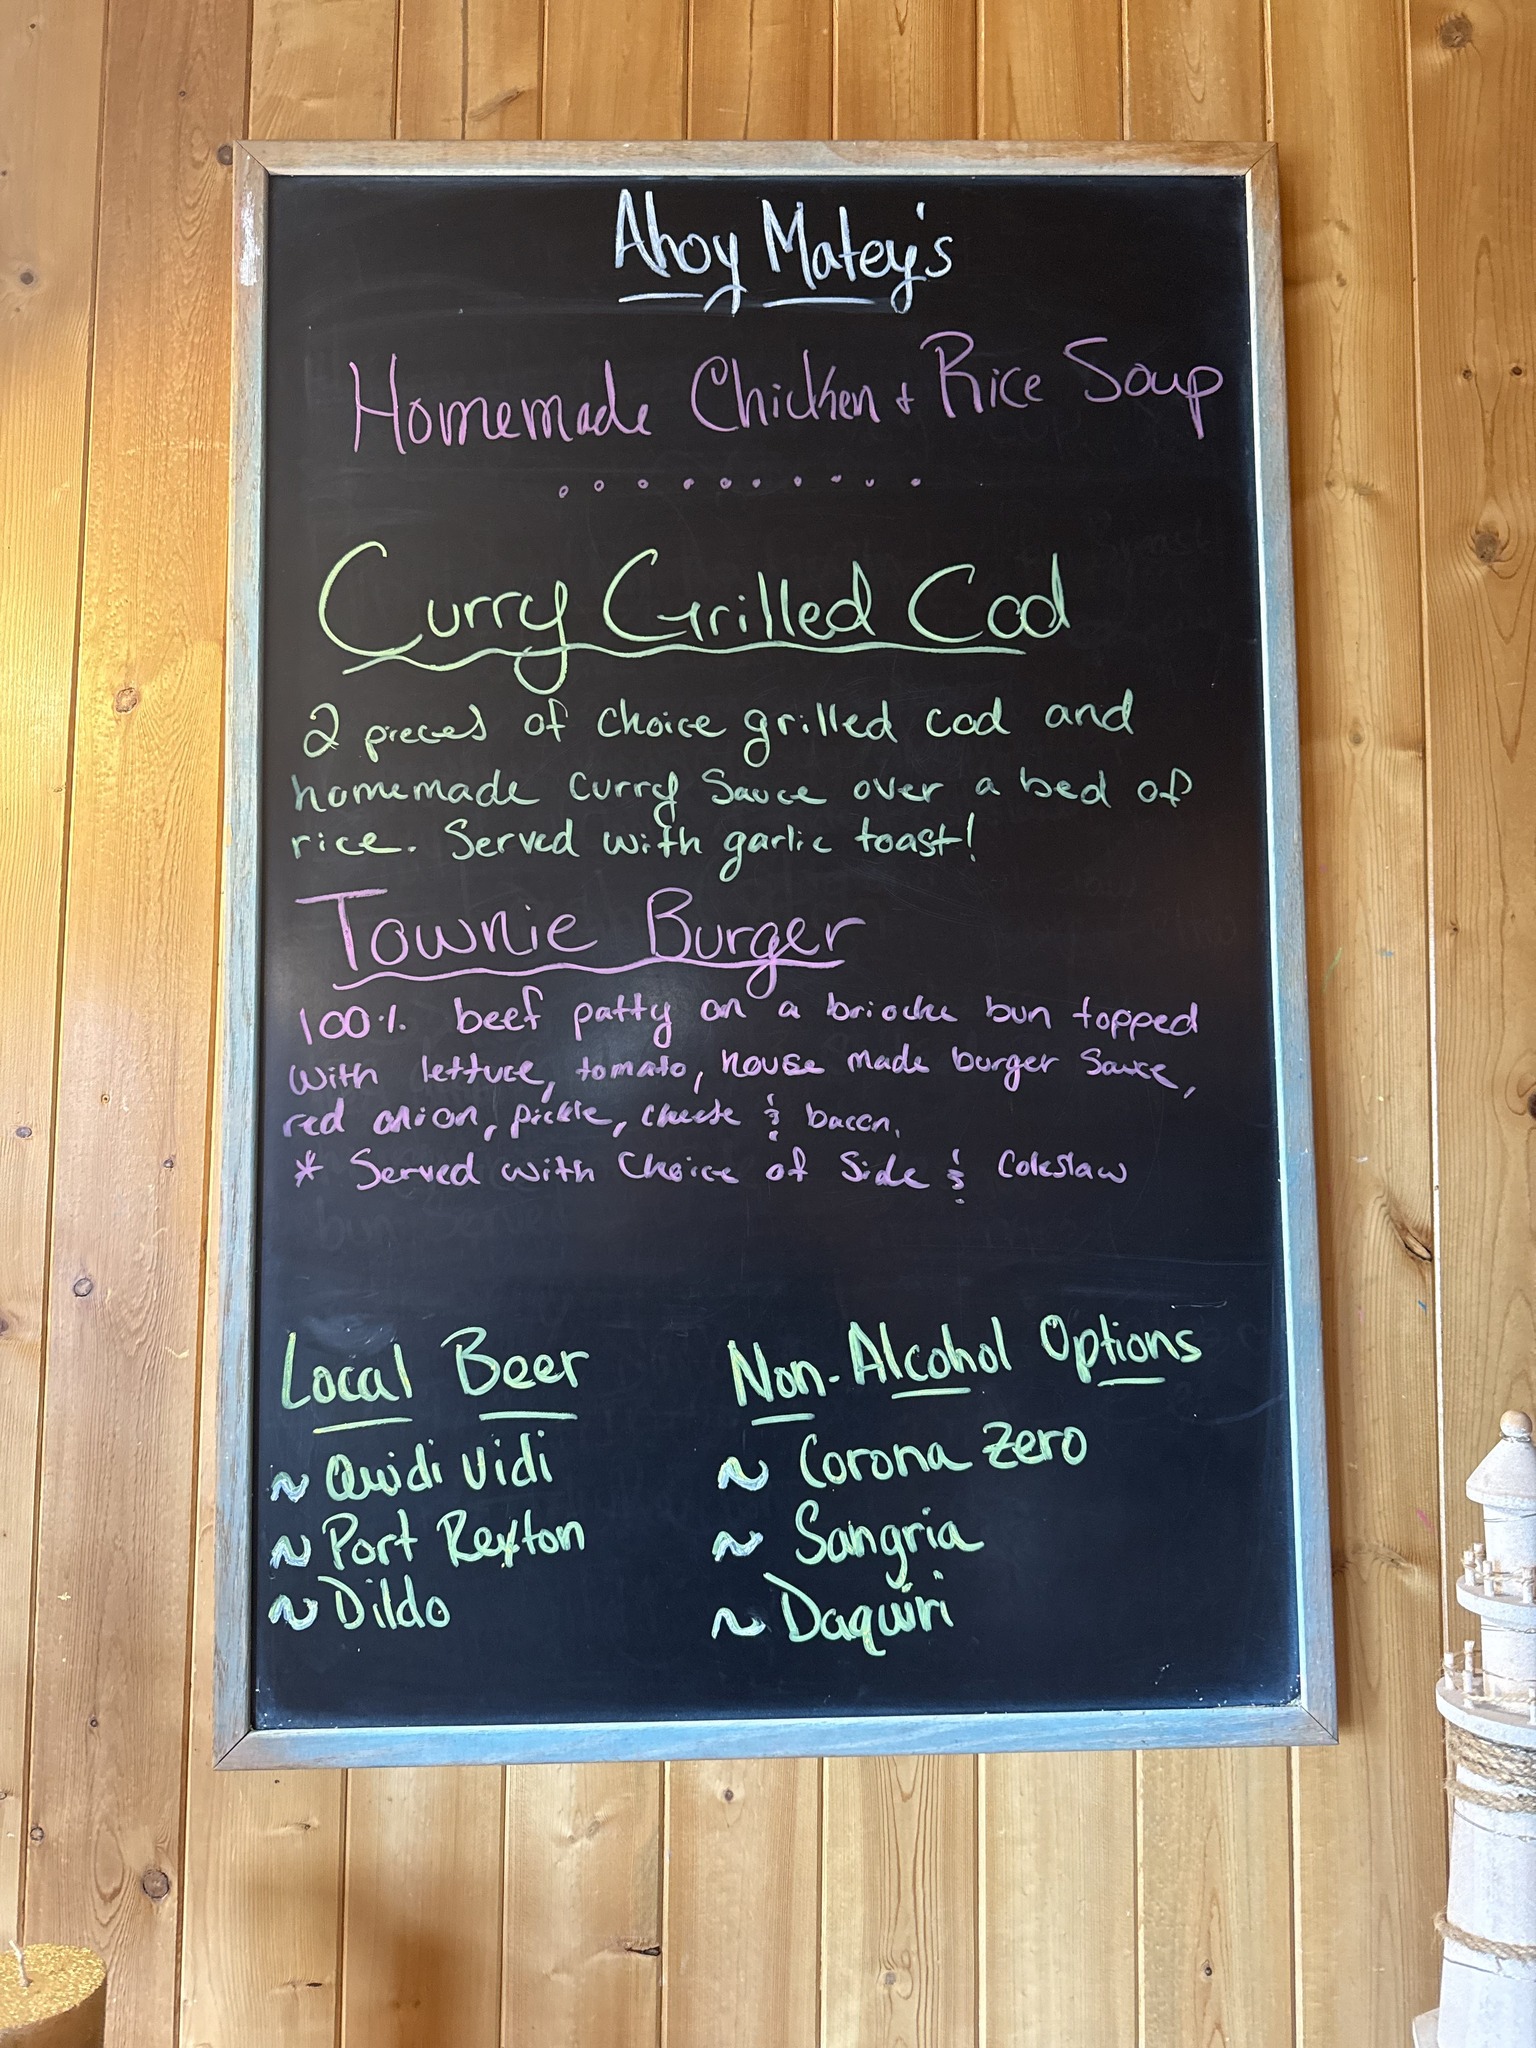 Ahoy Matey's
Homemade Chicken + Rice Soup
Curry Grilled Cod
2 pieces of choice grilled cod and
homemade curry sauce over a bed of
rice. Served with garlic toast!
Townie Burger
100% beef patty on a brioche bun topped
with lettuce, tomato, house made burger sauce,
red onion, pickle, cheese & bacon.
* Served with choice of side & coleslaw
Local Beer
~ Quidi Vidi
~ Port Rexton
~ Dildo
Non-Alcohol Options
~ Corona Zero
~ Sangria
~ Daquiri